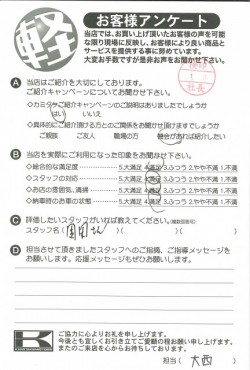 軽
お客様アンケート
当店では、お買い上げ頂いたお客様の声を可能
な限り現場に反映し、お客様により良い商品と
サービスを提供する事に努めています。
大変お手数ですが是非お声をお聞かせ下さい。
A 当店はご紹介を大切にしております。
ご紹介キャンペーンについてお聞かせ下さい。
・カミタケご紹介キャンペーンのご説明はありましたでしょうか
はい いいえ
・具体的にご紹介頂ける方とのご関係をお聞かせ頂けますでしょうか
ご親族 ご友人 職場の方 機会があれば紹介したい
B 当店を実際にご利用になった印象をお聞かせ下さい。
・総合的な満足度 5.大満足 4.満足 3.ふつう 2.やや不満 1.不満
・スタッフの対応 5.大満足 4.満足 3.ふつう 2.やや不満 1.不満
・お店の雰囲気、清掃 5.大満足 4.満足 3.ふつう 2.やや不満 1.不満
・納車時のお車の状態 5.大満足 4.満足 3.ふつう 2.やや不満 1.不満
C 評価したいスタッフがいれば教えてください。(複数回答可)
スタッフ名( )
D 担当させて頂きましたスタッフへのご指摘、ご指導メッセージを
お願いします。応援メッセージもぜひお願いします。
ご協力に心よりお礼を申し上げます。
今後とも宜しくお引き立てご愛顧の程お願い申し上げます。
またのご来店を心からお待ちしております。
担当( 大西 )
社長